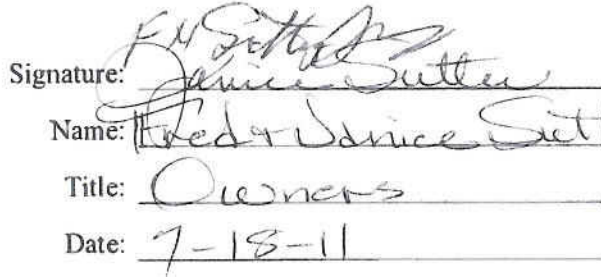 Signature: Janice Sutter
Name: Fred & Janice Sut
Title: Owners
Date: 7-18-11